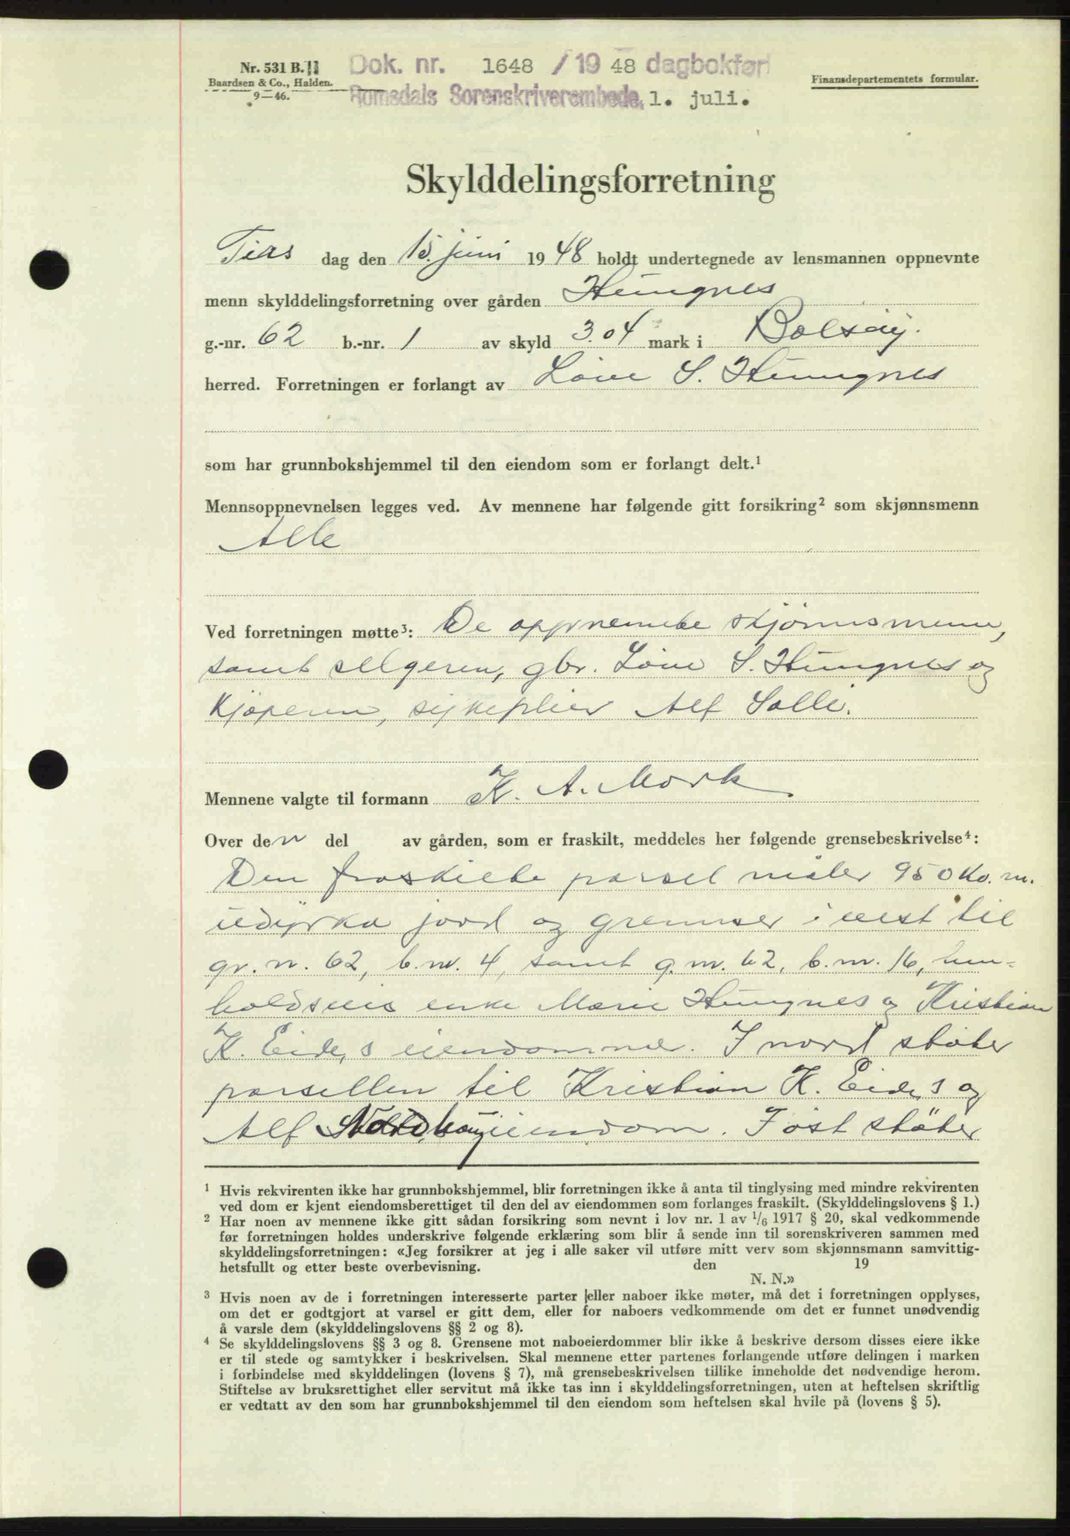 Nr. 531 B. II
Baardsen & Co., Halden.
9—46.
Dok. nr. 1648 / 19 48 dagbokført
Romsdals Sorenskriverembede, 1. juli.
Finansdepartementets formular.
Skylddelingsforretning
Tirs dag den 15. juni 1948 holdt undertegnede av lensmannen oppnevnte
menn skylddelingsforretning over gården Hungnes
g.-nr. 62 b.-nr. 1 av skyld 3.04 mark i Bolsöy.
herred. Forretningen er forlangt av Love S. Hungnes
som har grunnbokshjemmel til den eiendom som er forlangt delt.¹
Mennsoppnevnelsen legges ved. Av mennene har følgende gitt forsikring² som skjønnsmenn
Alle
Ved forretningen møtte³: De oppnemnte skjönnsmenn,
samt selgeren, gbr. Love S. Hungnes og
kjøperen, sykepleier Alf Solli.
Mennene valgte til formann K. A. Mork
Over den del av gården, som er fraskilt, meddeles her følgende grensebeskrivelse⁴:
Den fraskilte parsel måler 950 kv. m.
udyrka jord og grenser i vest til
gr. n. 62, b. nr. 4, samt g. nr. 62, b. nr. 16, hen-
holdsvis enke Marie Hungnes og Kristian
K. Eide,s eiendommer. I nord støter
parsellen til Kristian K. Eide,s og
Alf Nordhøy eiendom. I öst støter
¹ Hvis rekvirenten ikke har grunnbokshjemmel, blir forretningen ikke å anta til tinglysing med mindre rekvirenten
ved dom er kjent eiendomsberettiget til den del av eiendommen som forlanges fraskilt. (Skylddelingslovens § 1.)
² Har noen av mennene ikke gitt sådan forsikring som nevnt i lov nr. 1 av 1/6 1917 § 20, skal vedkommende
før forretningen holdes underskrive følgende erklæring som blir å sende inn til sorenskriveren sammen med
skylddelingsforretningen: «Jeg forsikrer at jeg i alle saker vil utføre mitt verv som skjønnsmann samvittig-
hetsfullt og etter beste overbevisning. den 19
N. N.»
³ Hvis noen av de i forretningen interesserte parter eller naboer ikke møter, må det i forretningen opplyses,
om det er godtgjort at varsel er gitt dem, eller for naboers vedkommende om det er funnet unødvendig
å varsle dem (skylddelingslovens §§ 2 og 8).
⁴ Se skylddelingslovens §§ 3 og 8. Grensene mot naboeierdommer blir ikke å beskrive dersom disses eiere ikke
er til stede og samtykker i beskrivelsen. Skal mennene etter partenes forlangende utføre delingen i marken
i forbindelse med skylddelingen (lovens § 7), må grensebeskrivelsen tillike inneholde det nødvendige herom.
Stiftelse av bruksrettighet eller servitut må ikke tas inn i skylddelingsforretningen, uten at heftelsen skriftlig
er vedtatt av den som har grunnbokshjemmel til den eiendom som heftelsen skal hvile på (lovens § 5).